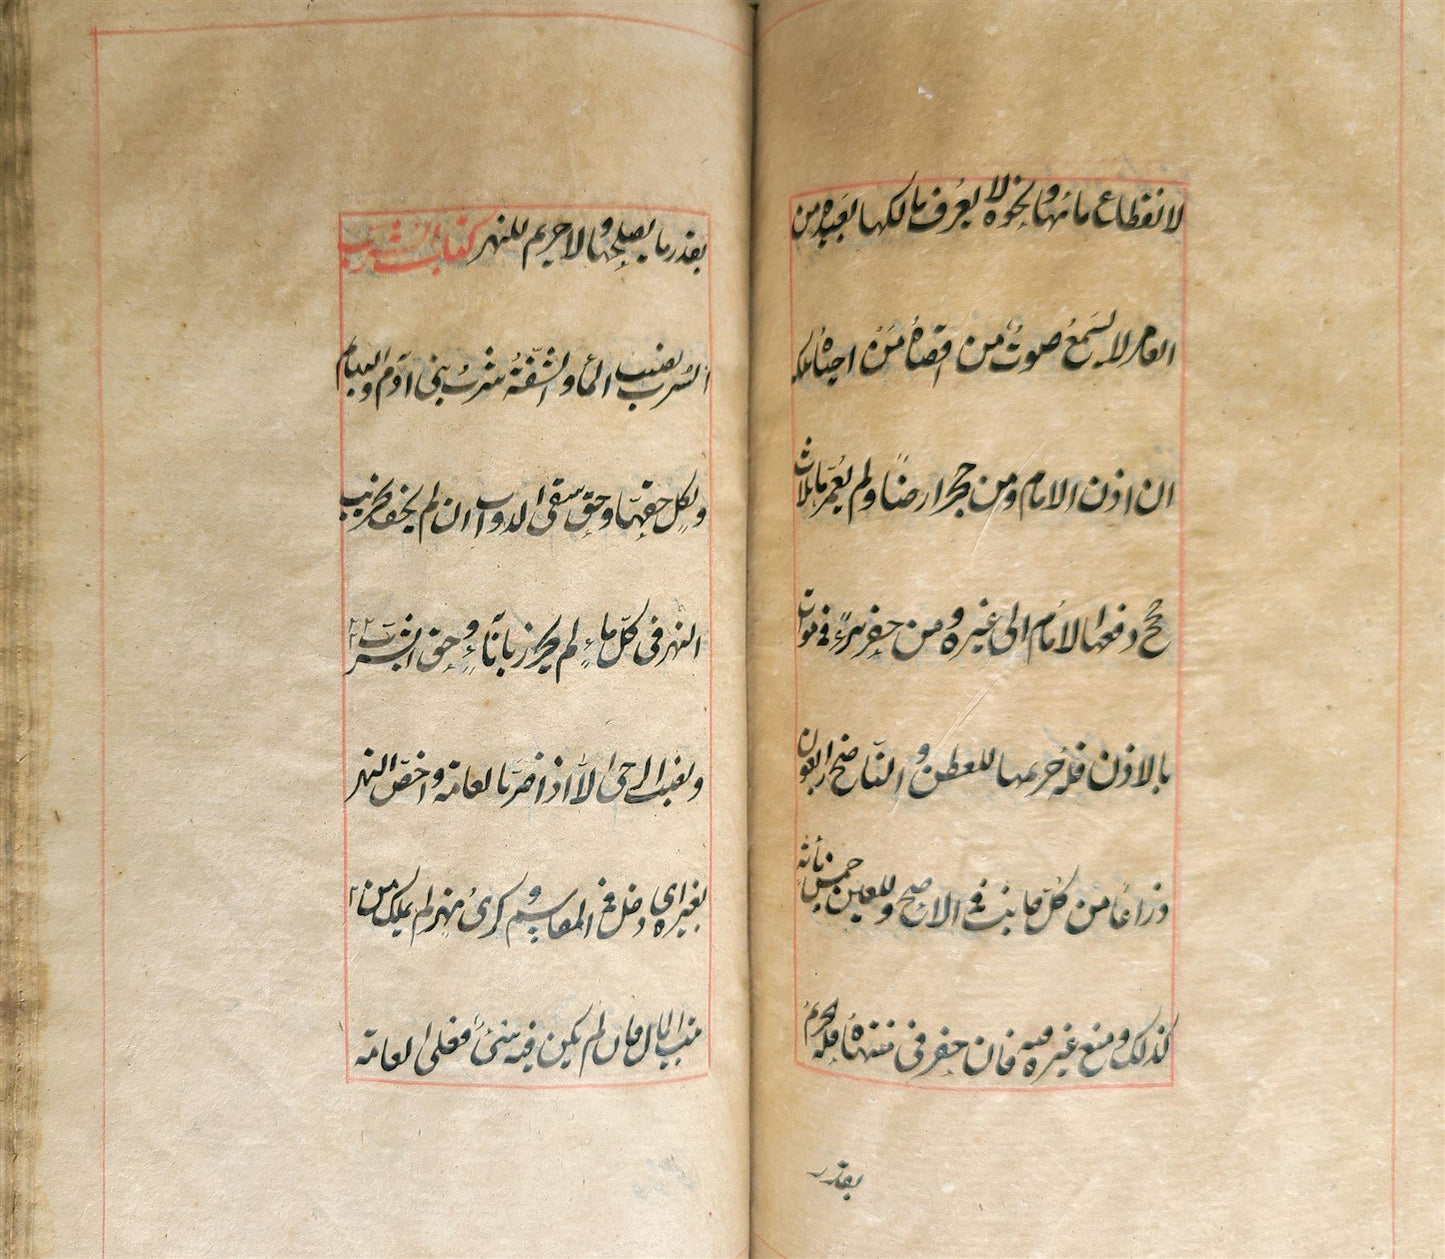 لانقطاع مائها ونحوه لا يعرف مالكها بعيدة من
العامر لا يسمع صوت من اقصاه من احياه ملكه
ان اذن الامام ومن حجر ارضا ولم يعمرها ثلاث
حجج دفعها الامام الى غيره ومن حفر بيرا في موات
بالاذن فله حريمها للعطن والناضح اربعون
ذراعا من كل جانب في الاصح وللعين خمس مائة
كذلك ومنع غيره منه فان حفر في منتهاه فله الحريم
بقدر
بقدر ما يصلحها ولا حريم للنهر كتاب الشرب
الشرب نصيب الماء والشفة شرب بنى آدم والبهايم
ولكل حقها وحق سقى الدواب ان لم يخف تخريب
النهر فى كل ماء لم يحرز باناء وحق الشرب
الرحى الا اذا ضر بالعامة واخص النهر
بغيره اى دخل فى المقاسم وكرى نهر لم يملك من
بيت المال فان لم يكن فيه شئ فعلى العامة